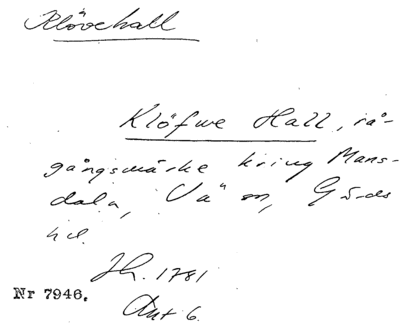 Klövehall
Klöfwe Hall, rå-
gångsmärke kring Mans-
dala, Va" sn, Gärds
hd.
Jh. 1781
Nr 7946.
Akt 6.